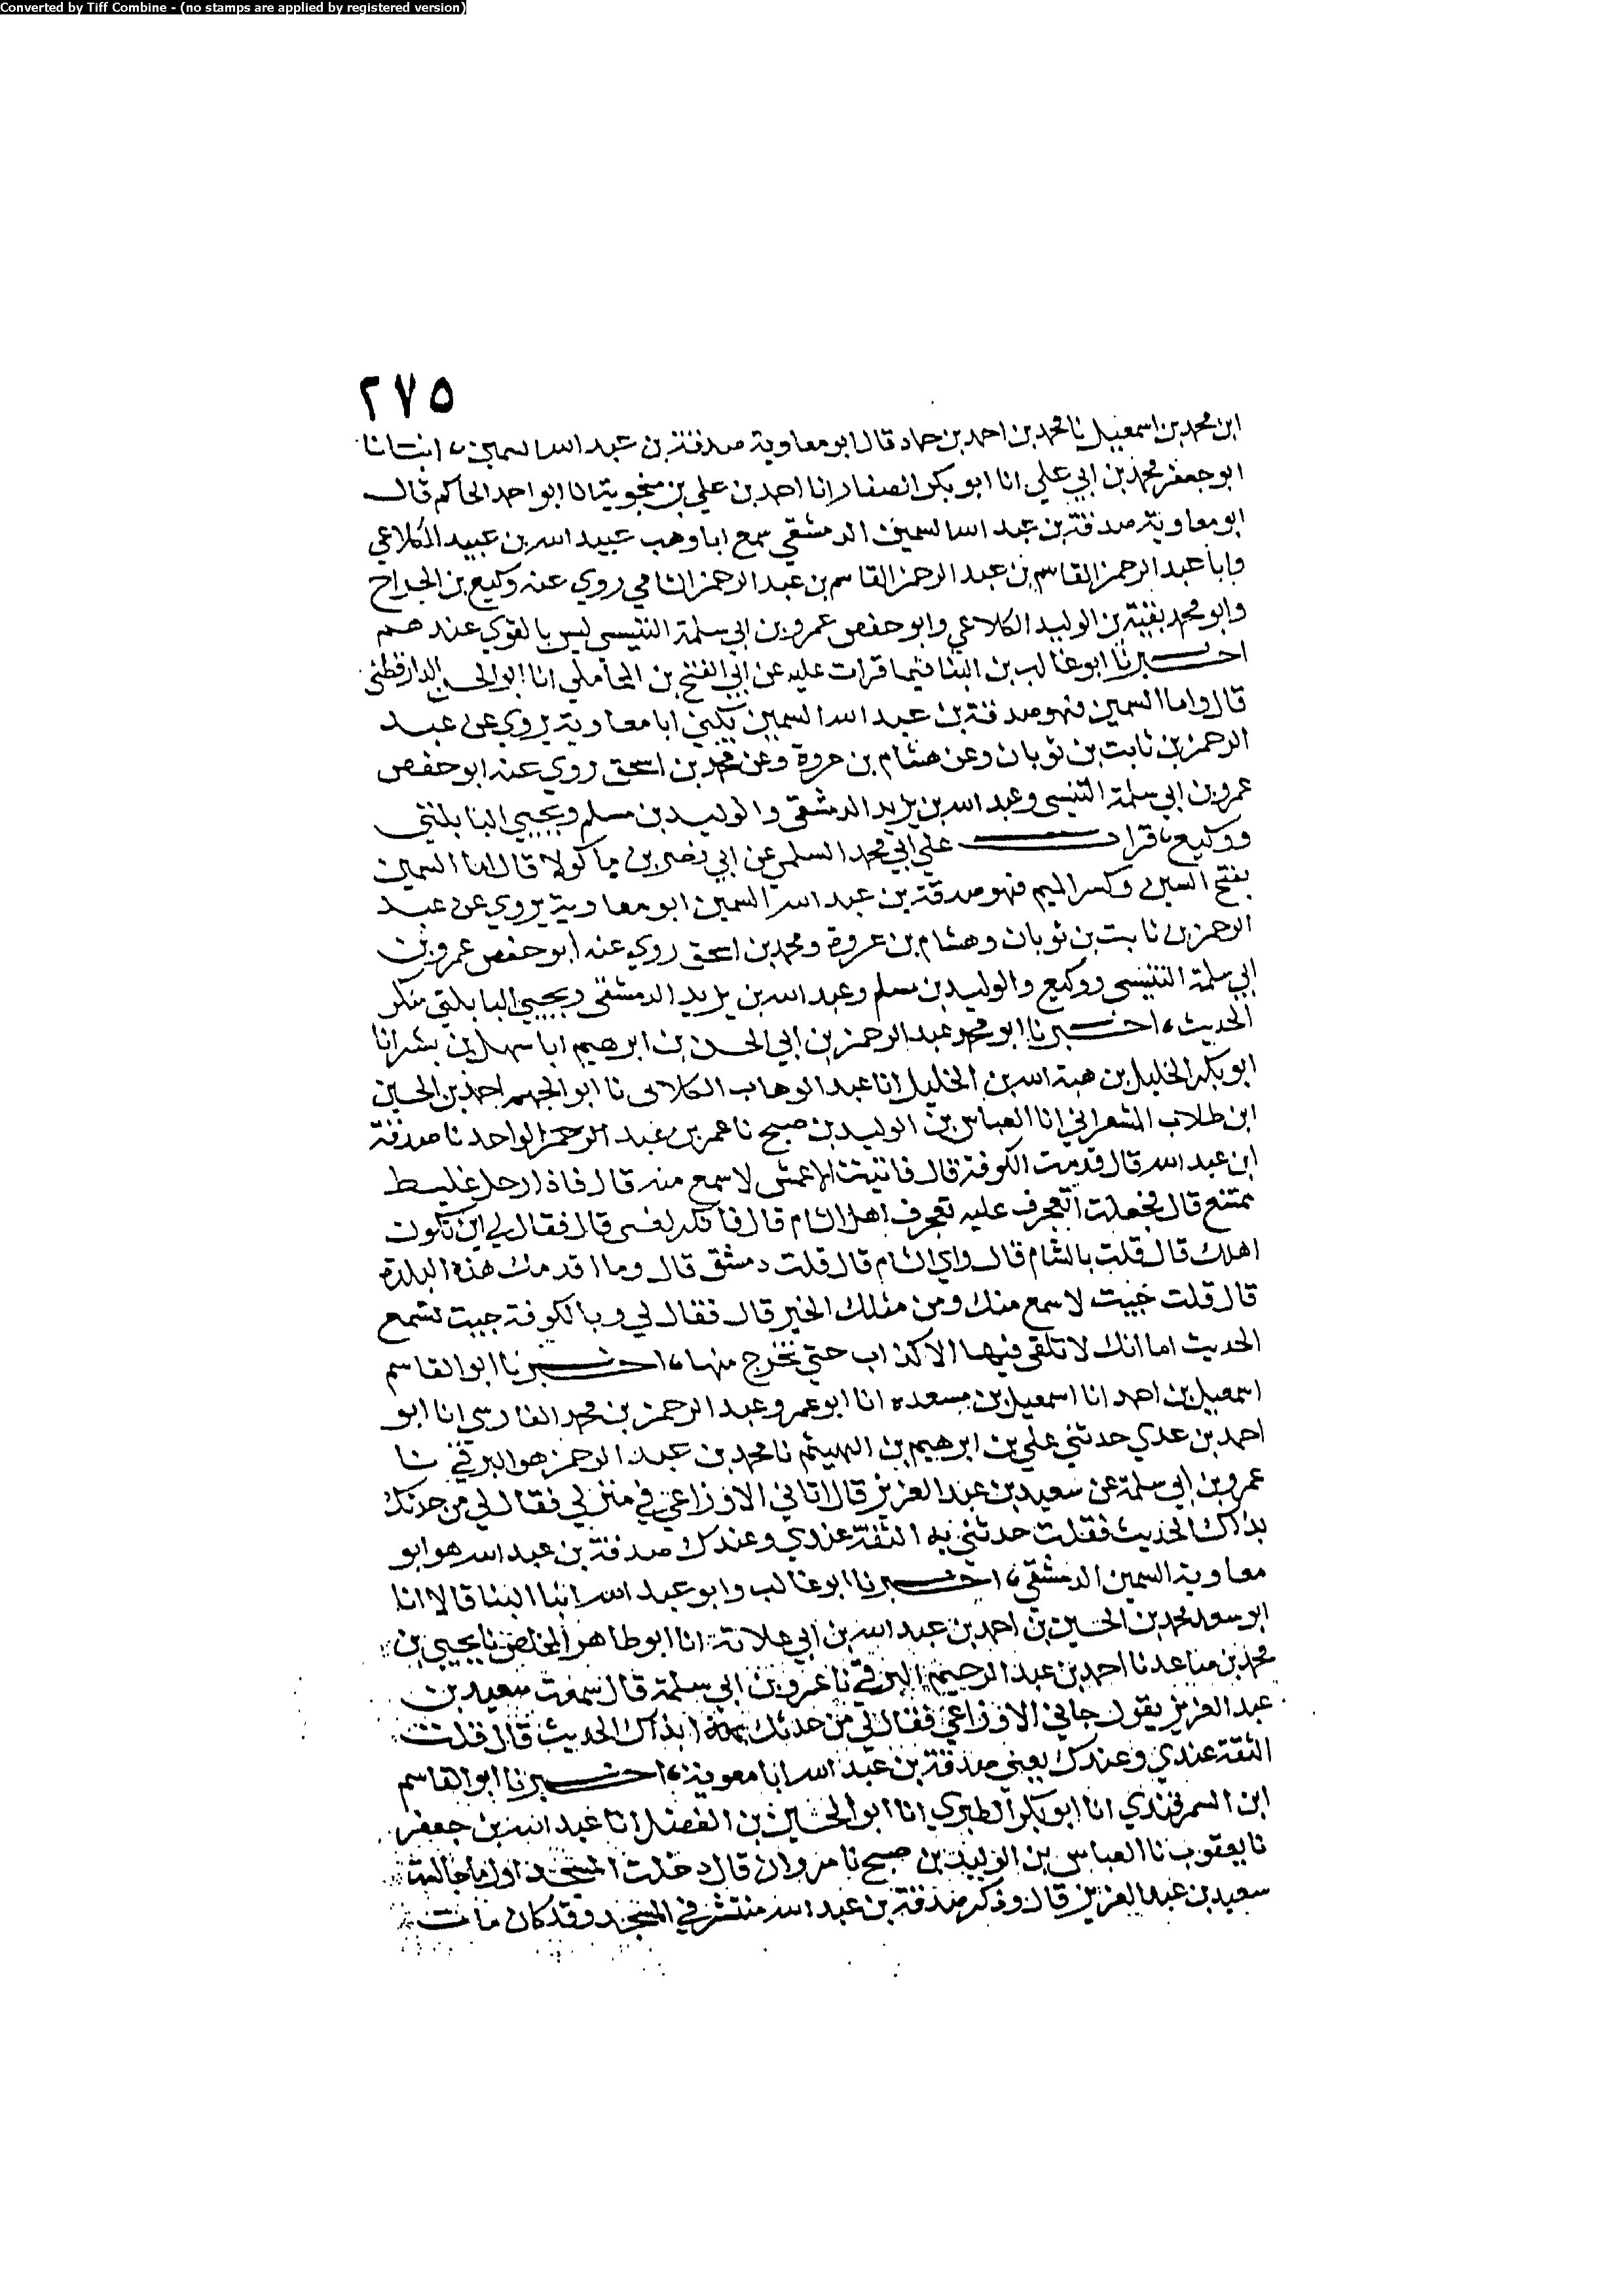 Converted by Tiff Combine - (no stamps are applied by registered version)
٢٧٥
ابن محمد بن اسمعيل نا محمد بن احمد بن حماد قال ابو معاوية صدقة بن عبد الله السمين، انبانا
ابو جعفر محمد بن ابي علي انا ابو بكر الصفار انا احمد بن علي بن منجويه انا ابو احمد الحاكم قال
ابو معاوية صدقة بن عبد الله السمين الدمشقي سمع ابا وهب عبيد الله بن عبيد الكلاعي
وابا عبد الرحمن القاسم بن عبد الرحمن القاسم بن عبد الرحمن الشامي روي عنه وكيع بن الجراح
وابو محمد بقية بن الوليد الكلاعي وابو حفص عمرو بن ابي سلمة التنيسي ليس بالقوي عندهم
اخبرنا ابو غالب بن البنا فيما قرات عليه عن ابي الفتح بن المحاملي انا ابو الحسن الدارقطني
قال واما السمين فهو صدقة بن عبد الله السمين يكني ابا معاوية يروي عن عبد
الرحمن بن ثابت بن ثوبان وعن هشام بن عروة وعن محمد بن اسحق روي عنه ابو حفص
عمرو بن ابي سلمة التنيسي وعبد الله بن يزيد الدمشقي والوليد بن مسلم ويحيي البابلتي
ووكيع، قرات علي ابي محمد السلمي عن ابي نصر بن ماكولا قال اما السمين
بفتح السين وكسر الميم فهو صدقة بن عبد الله السمين ابو معاوية يروي عن عبد
الرحمن بن ثابت بن ثوبان وهشام بن عروة ومحمد بن اسحق روي عنه ابو حفص عمرو بن
ابي سلمة التنيسي ووكيع والوليد بن مسلم وعبد الله بن يزيد الدمشقي ويحيي البابلتي منكر
الحديث، اخبرنا ابو محمد عبد الرحمن بن ابي الحسن بن ابرهيم ابا سهل بن بشر انا
ابو بكر الخليل بن هبة الله بن الخليل انا عبد الوهاب الكلابي نا ابو الجهم احمد بن الحسين
ابن طلاب المشعراني انا العباس بن الوليد بن صبح نا عمر بن عبد الواحد نا صدقة
ابن عبد الله قال قدمت الكوفة قال فاتيت الاعمش لاسمع منه قال فاذا رجل غليظ
ممتنع قال فجعلت اتعجرف عليه تعجرف اهل الشام قال فانكر لغتي قال فقال لي اين تكون
اهلك قال قلت بالشام قال واي الشام قال قلت دمشق قال وما اقدمك هذه البلدة
قال قلت جيت لاسمع منك ومن مثلك الخير قال فقال لي وبالكوفة جيت تسمع
الحديث اما انك لا تلقي فيها الا كذاب حتي تخرج منها، اخبرنا ابو القاسم
اسمعيل بن احمد انا اسمعيل بن مسعده انا ابو عمرو عبد الرحمن بن محمد الفارسي انا ابو
احمد بن عدي حدثني علي بن ابرهيم بن الهيثم نا محمد بن عبد الرحمن هو البرقي نا
عمرو بن ابي سلمة عن سعيد بن عبد العزيز قال اتاني الاوزاعي في منزلي فقال لي من حدثك
بذاك الحديث فقلت حدثني به الثقة عندي وعندك صدقة بن عبد الله هو ابو
معاوية السمين الدمشقي، اخبرنا ابو غالب وابو عبد الله ابنا البنا قالا انا
ابو سعد محمد بن الحسين بن احمد بن عبد الله بن ابي علانة انا ابو طاهر المخلص نا يحيي بن
محمد بن صاعد نا احمد بن عبد الرحيم البرقي نا عمرو بن ابي سلمة قال سمعت سعيد بن
عبد العزيز يقول جاني الاوزاعي فقال لي من حدثك بذاك الحديث قال قلت
الثقة عندي وعندك يعني صدقة بن عبد الله ابا معوية، اخبرنا ابو القاسم
ابن السمرقندي انا ابو بكر الطبري انا ابو الحسين بن الفضل انا عبد الله بن جعفر
نا يعقوب نا العباس بن الوليد بن صبح نا مروان قال دخلت المسجد اول ما جالست
سعيد بن عبد العزيز قال وذكر صدقة بن عبد الله منتشر في المسجد وقد كان مات